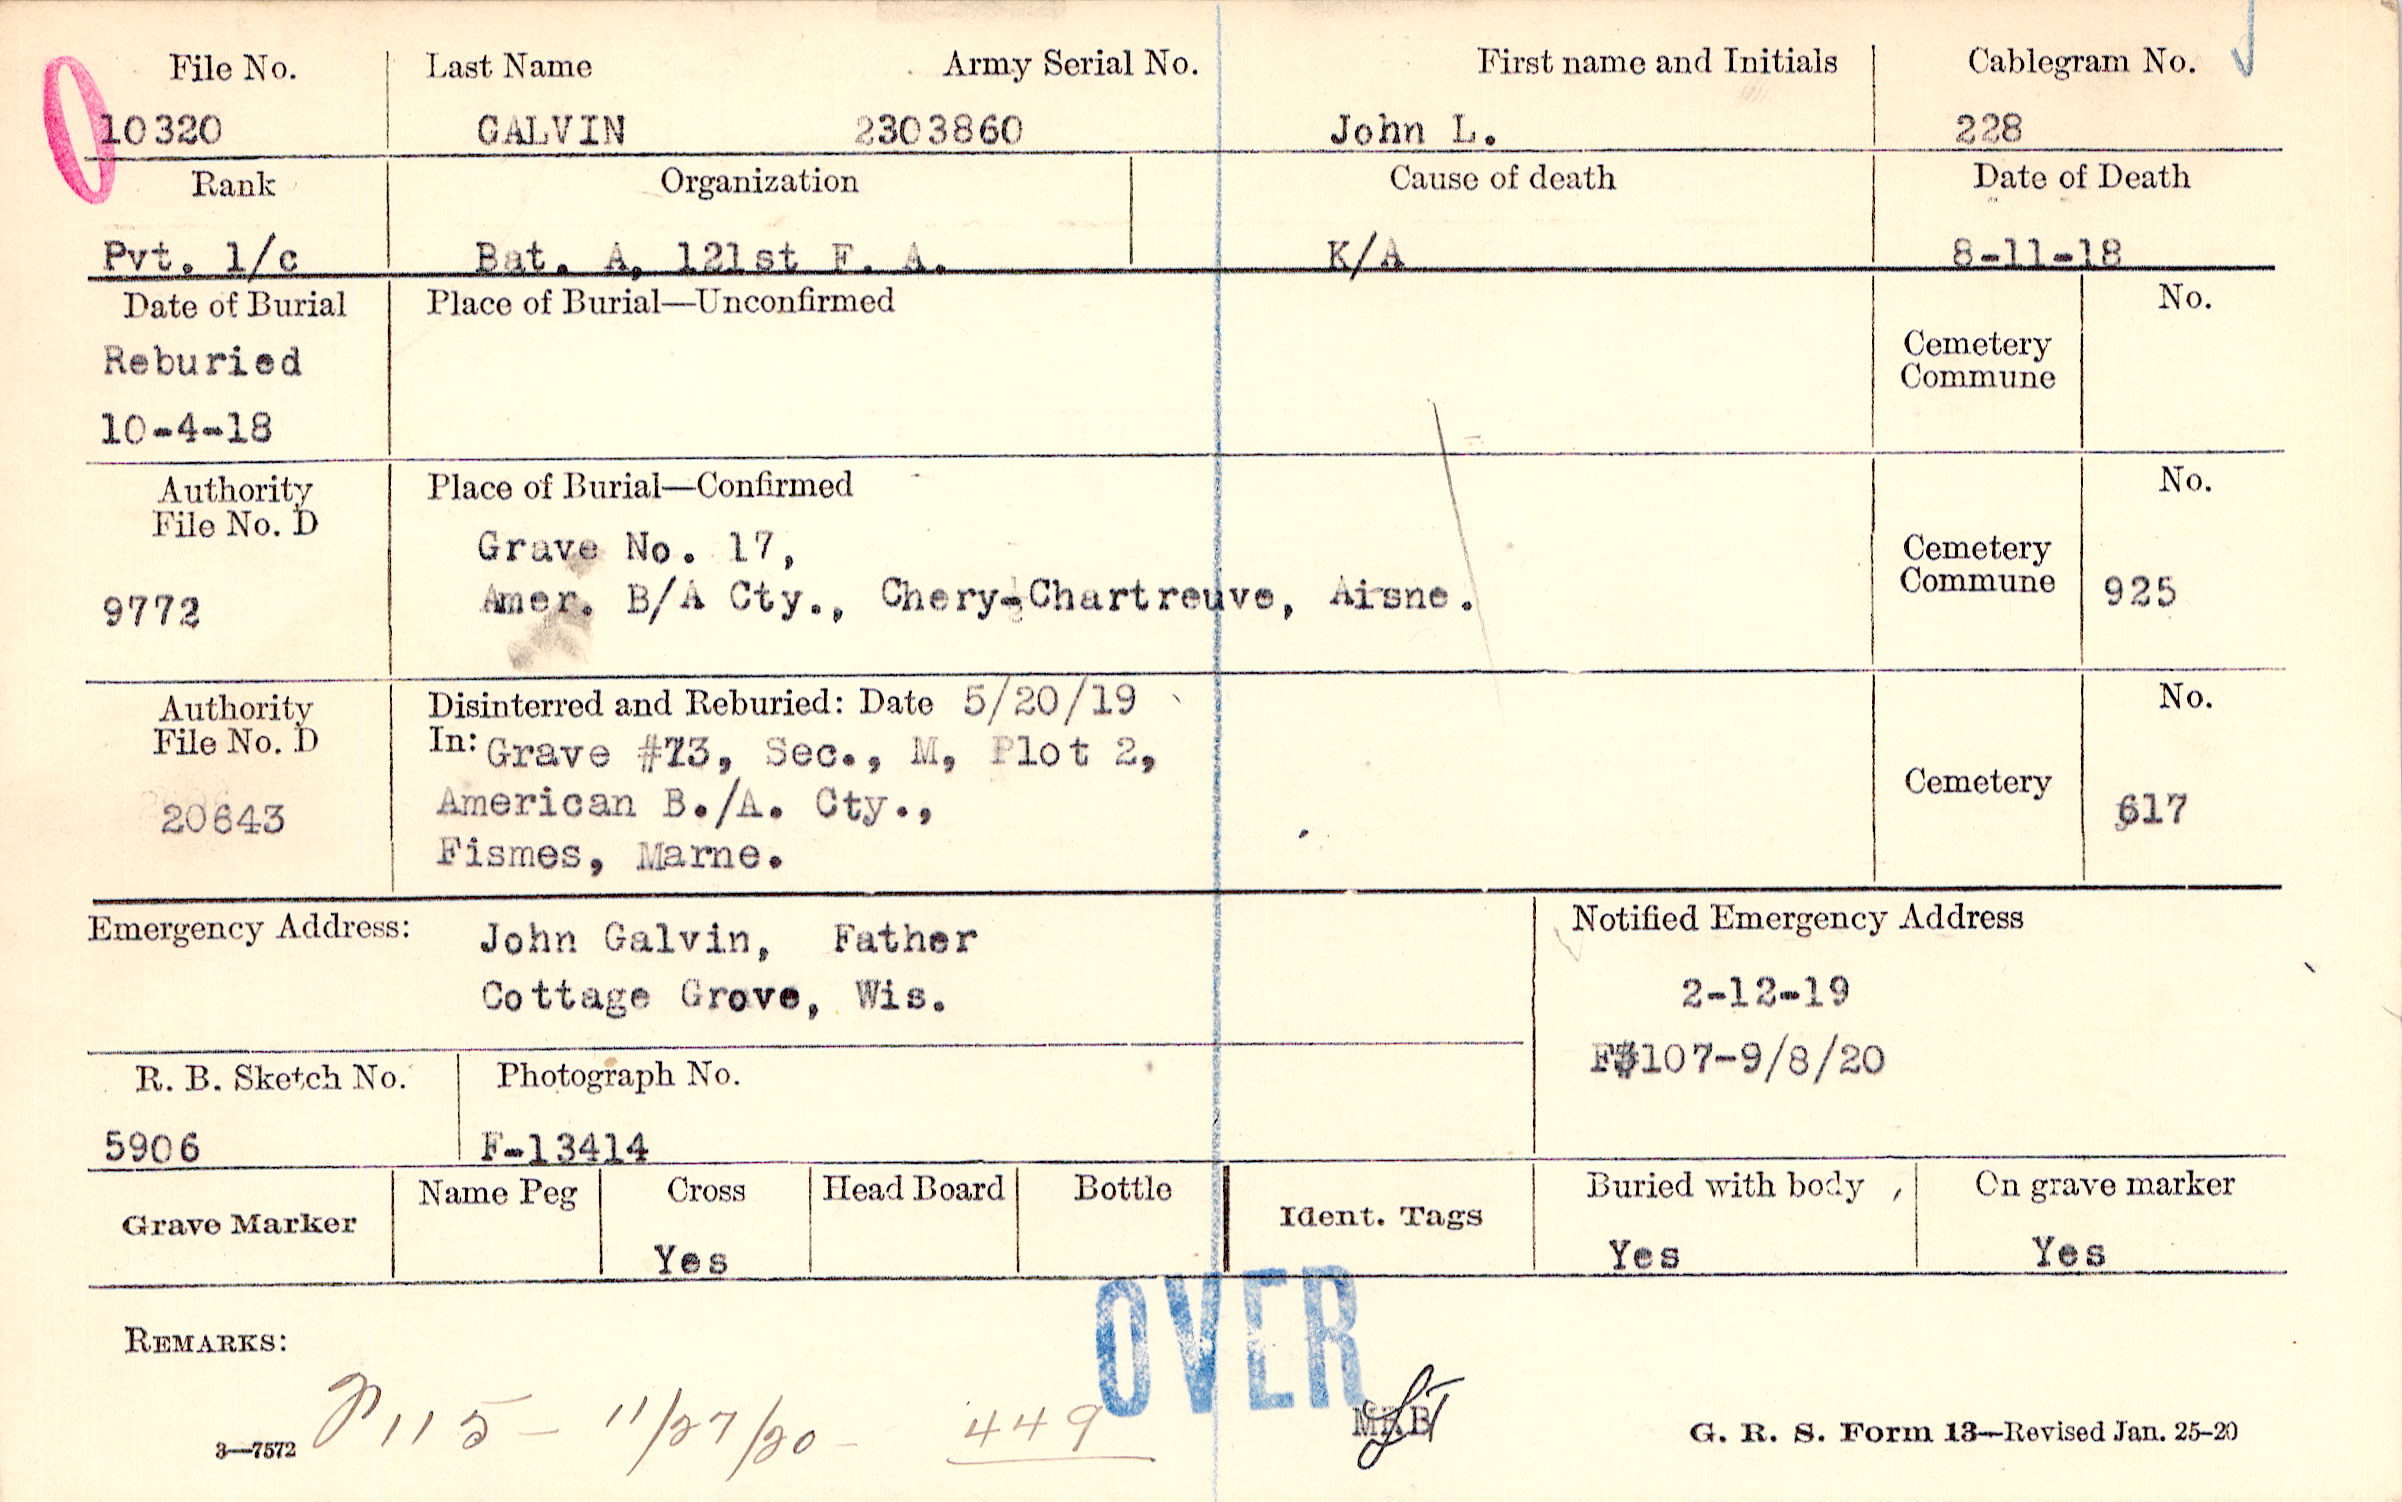 File No. Last Name Army Serial No. First name and Initials Cablegram No.
10320 GALVIN 2303860 John L. 228
Rank Organization Cause of death Date of Death
Pvt. 1/c Bat. A, 121st F. A. K/A 8-11-18
Date of Burial Place of Burial—Unconfirmed No.
Reburied
10-4-18
Cemetery
Commune
Authority
File No. D
9772
Place of Burial—Confirmed No.
Grave No. 17,
Amer. B/A Cty., Chery-Chartreuve, Aisne.
Cemetery
Commune 925
Authority
File No. D
20643
Disinterred and Reburied: Date 5/20/19 No.
In: Grave #73, Sec., M, Plot 2,
American B./A. Cty.,
Fismes, Marne.
Cemetery 617
Emergency Address: John Galvin, Father
Cottage Grove, Wis.
Notified Emergency Address
2-12-19
107-9/8/20
R. B. Sketch No. Photograph No.
5906 F-13414
Grave Marker Name Peg Cross Head Board Bottle Ident. Tags Buried with body On grave marker
Yes Yes Yes
OVER
REMARKS:
115 - 11/27/20 - 449
3—7572 G. R. S. Form 13—Revised Jan. 25-20